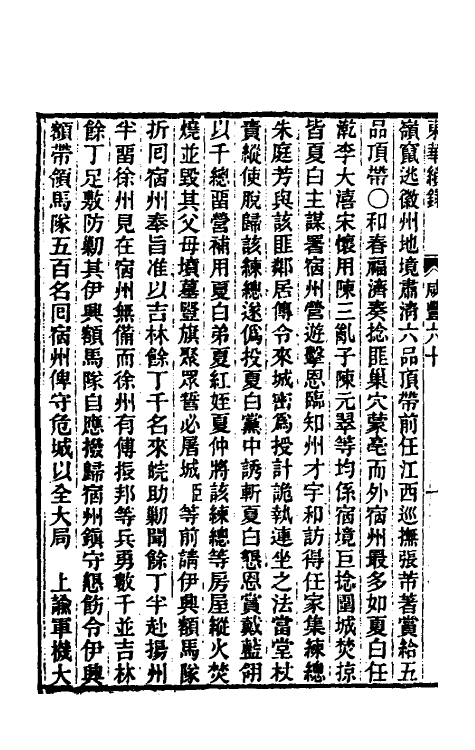 東華續錄 咸豐六十 一
嶺竄逃徽州地境肅清六品頂帶前任江西巡撫張芾著賞給五
品頂帶〇和春福濟奏捻匪巢穴蒙亳而外宿州最多如夏白任
乾李大禧宋懷用陳三亂子陳元翠等均係宿境巨捻圍城焚掠
皆夏白主謀署宿州營遊擊恩臨知州才宇和訪得任家集練總
朱庭芳與該匪鄰居傳令來城密爲授計詭執連坐之法當堂杖
責縱使脫歸該練總遂僞投夏白黨中誘斬夏白懇恩賞戴藍翎
以千總留營補用夏白弟夏紅姪夏仲將該練總等房屋縱火焚
燒並毀其父母墳墓豎旗聚眾誓必屠城臣等前請伊興額馬隊
折囘宿州奉旨准以吉林餘丁千名來皖助勦聞餘丁半赴揚州
半留徐州見在宿州無備而徐州有傅振邦等兵勇數千並吉林
餘丁足敷防勦其伊興額馬隊自應撥歸宿州鎮守懇飭令伊興
額帶領馬隊五百名囘宿州俾守危城以全大局 上諭軍機大